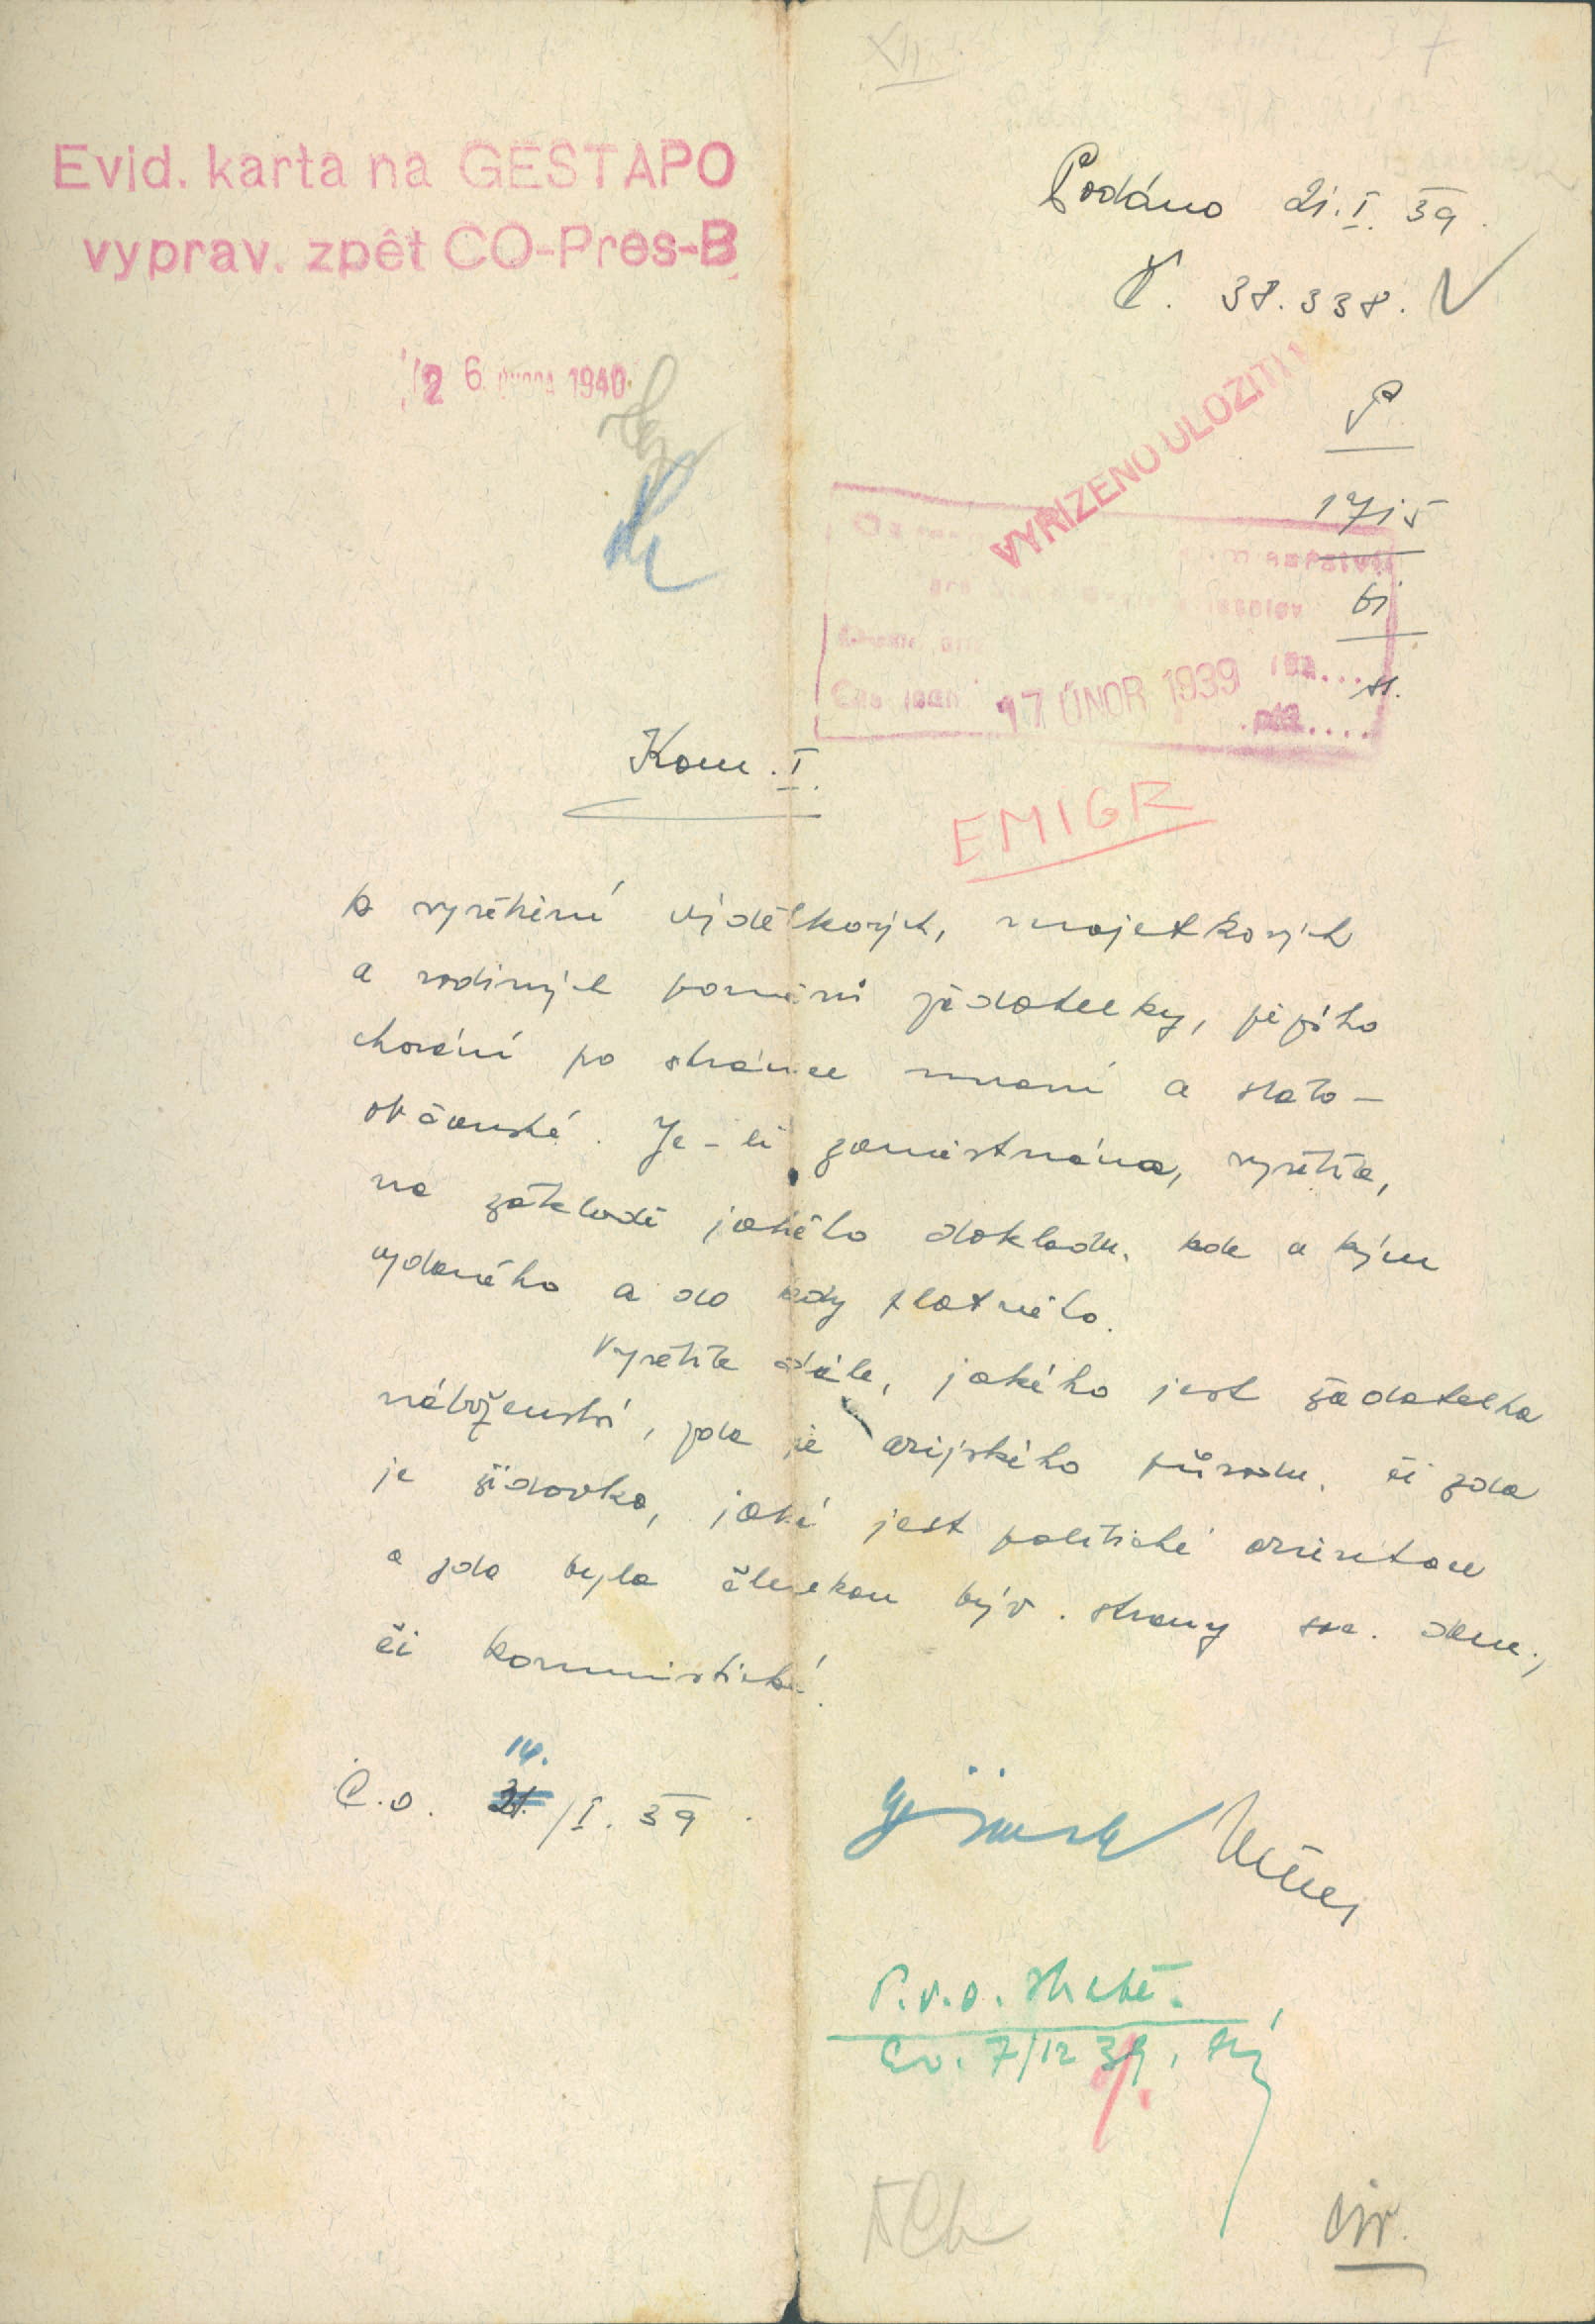 Evid. karta na GESTAPO
vyprav. zpět CO-Pres-B
26. února 1940
Podáno 21.I. 39.
Č. 38.338.
VYŘÍZENO ULOŽITI
P
17/5
17 ÚNOR 1939
Kom. I.
EMIGR
k vyšetření výdělkových, majetkových
a rodiných poměrů žadatelky, jejího
chování po stránce mravní a stato-
občanské. Je-li zaměstnána, vyšetřte,
na základě jakého dokladu, kde a kým
vydaného a do kdy platného.
Vyšetřte dále, jakého jest žadatelka
náboženství, zda je arijského původu, či zda
je židovka, jaké jest politické orientace
a zda byla členkou býv. strany soc. dem.,
či komunistické.
14.
Č.o. 21./I. 39.
7/12 39,